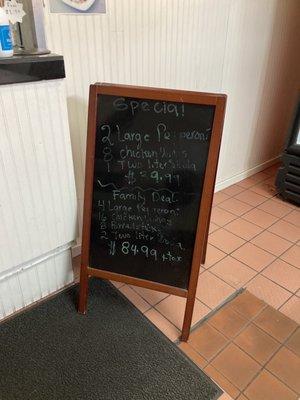 Special
2 Large Pepperoni
8 chicken
1 Two liter soda
$ 9.99
Family Deal
4 Large Pepperoni
16 chicken
8 Breadsticks
2 Two liter soda
$ 84.99 + tax